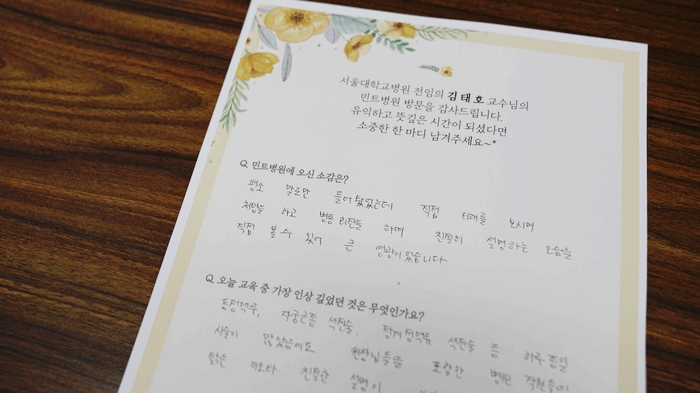 서울대학교병원 전임의 김태호 교수님의
민트병원 방문을 감사드립니다.
유익하고 뜻깊은 시간이 되셨다면
소중한 한 마디 남겨주세요~*
Q. 민트병원에 오신 소감은?
평소 말로만 들어 왔었는데 직접 외래를 보시며
처방을 하고 병동 회진을 하며 친절히 설명하는 모습을
직접 볼 수 있어 큰 영광이었습니다
Q. 오늘 교육 중 가장 인상 깊었던 것은 무엇인가요?
동정맥루, 자궁근종 색전술, 정계정맥류 색전술 등 하루종일
시술이 많았음에도 원장님들을 포함한 병원 직원들이
밝은 미소와 친절한 설명이